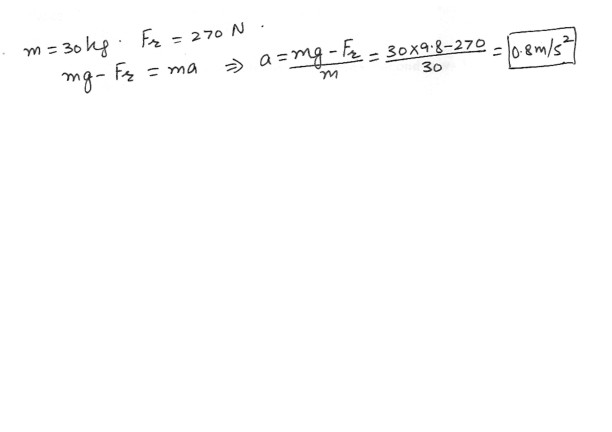 m = 30 kg . Fr = 270 N .
mg - Fr = ma ⇒ a = (mg - Fr)/m = (30×9.8-270)/30 = 0.8 m/s²